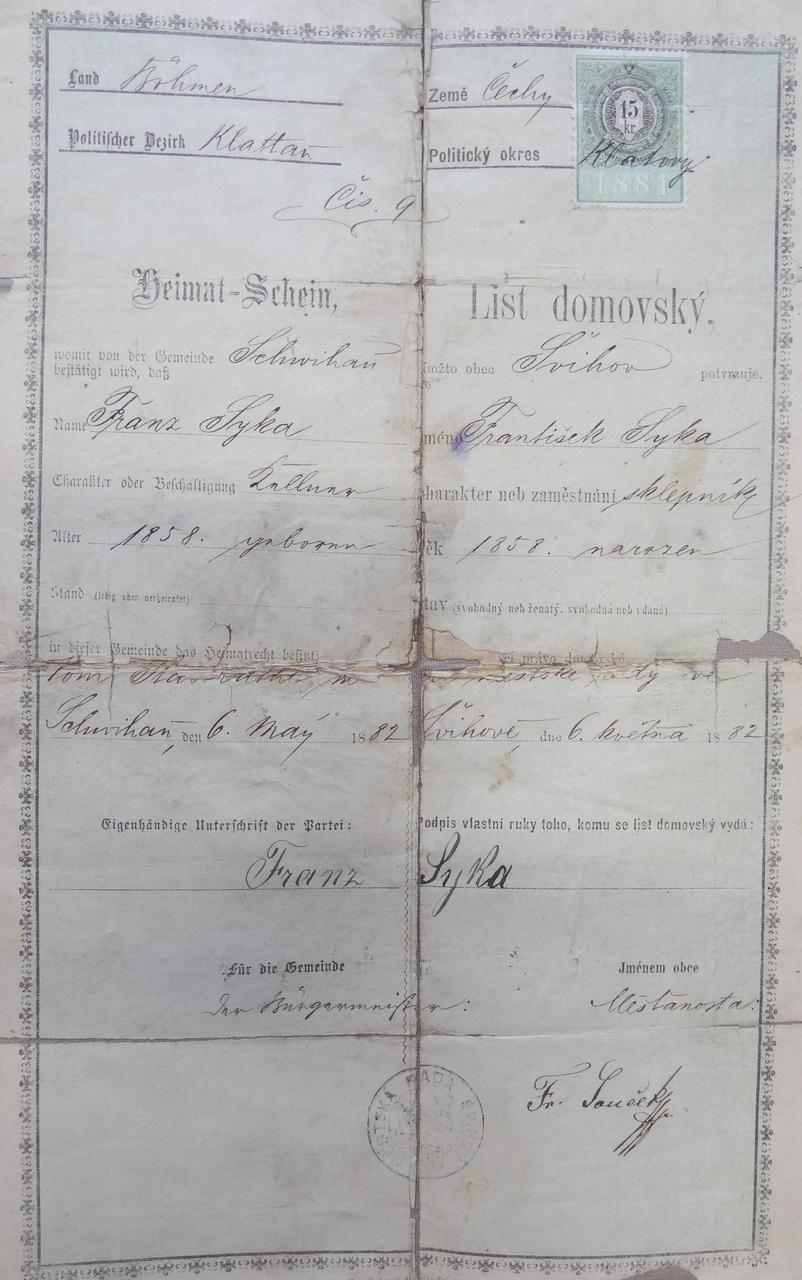 Land Böhmen
Politischer Bezirk Klattau
Země Čechy
Politický okres Klatovy
15
kr.
1881
Čís. 9
Heimat-Schein,
womit von der Gemeinde Schwihau
bestätigt wird, daß
Name Franz Syka
Charakter oder Beschäftigung Kellner
Alter 1858. geboren
Stand (ledig oder verheiratet)
in dieser Gemeinde das Heimatrecht besitzt
Vom Stadtrathe in
Schwihau, den 6. May 1882
Eigenhändige Unterschrift der Partei:
Franz Syka
Für die Gemeinde
Der Bürgermeister:
List domovský,
ímžto obec Švihov potvrzuje,
méno František Syka
charakter neb zaměstnání sklepník
ěk 1858. narozen
stav (svobodný neb ženatý, svobodná neb vdaná)
právo domovské
městské rady ve
Švihově, dne 6. května 1882
Podpis vlastní ruky toho, komu se list domovský vydá:
Jménem obce
Měšťanosta:
Fr. Souček
MĚSTSKÁ RADA